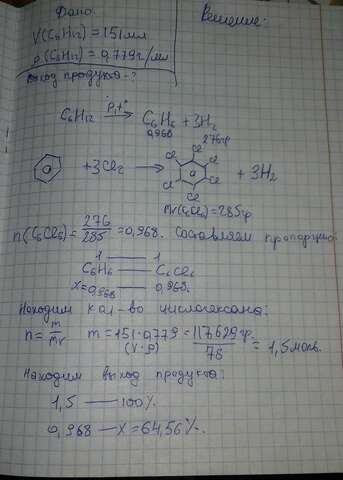 Дано:
Решение:
V(C6H12) = 151 мл
ρ(C6H12) = 0,779 г/мл
выход продукта - ?
C6H12 →(p,t°) C6H6 + 3H2
0,968
276 гр
+ 3Cl2 → + 3H2
Cl Cl Cl Cl Cl Cl
Mr(C6Cl6) = 285 гр
n(C6Cl6) = 276/285 = 0,968. Составляем пропорцию:
1 — 1
C6H6 — C6Cl6
x = 0,968 — 0,968.
Находим кол-во циклогексана:
n = m/mr m = 151 · 0,779 = 117,629 гр/78 = 1,5 моль.
(V · ρ)
Находим выход продукта:
1,5 — 100%
0,968 — x = 64,56%.